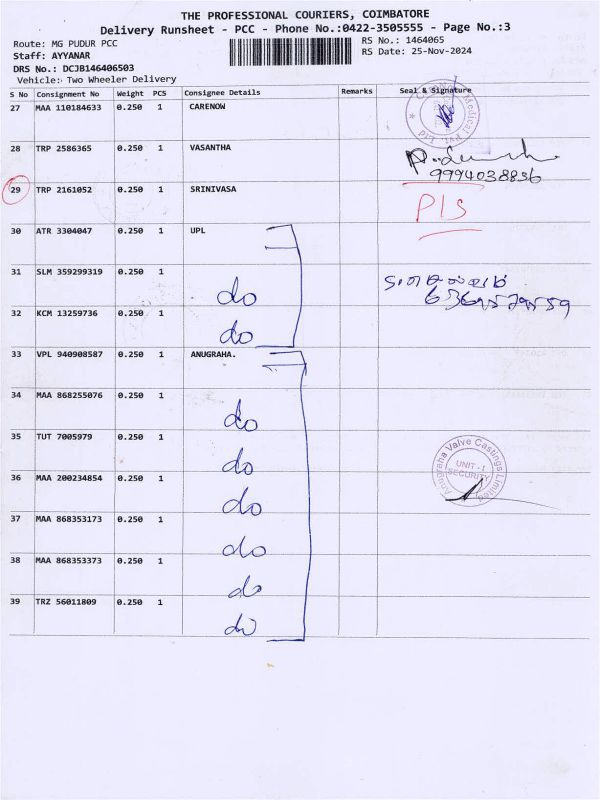 THE PROFESSIONAL COURIERS, COIMBATORE
Delivery Runsheet - PCC - Phone No.:0422-3505555 - Page No.:3
Route: MG PUDUR PCC
RS No.: 1464065
Staff: AYYANAR
RS Date: 25-Nov-2024
DRS No.: DCJB146406503
Vehicle:- Two Wheeler Delivery
S No Consignment No Weight PCS Consignee Details Remarks Seal & Signature
27 MAA 110184633 0.250 1 CARENOW
Medical Pvt. Ltd
28 TRP 2586365 0.250 1 VASANTHA
9994038836
29 TRP 2161052 0.250 1 SRINIVASA
PIS
30 ATR 3304047 0.250 1 UPL
31 SLM 359299319 0.250 1 do
32 KCM 13259736 0.250 1 do
33 VPL 940908587 0.250 1 ANUGRAHA.
34 MAA 868255076 0.250 1 do
35 TUT 7005979 0.250 1 do
Anugraha Valve Castings Limited
UNIT - I
SECURITY
36 MAA 200234854 0.250 1 do
37 MAA 868353173 0.250 1 do
38 MAA 868353373 0.250 1 do
39 TRZ 56011809 0.250 1 do